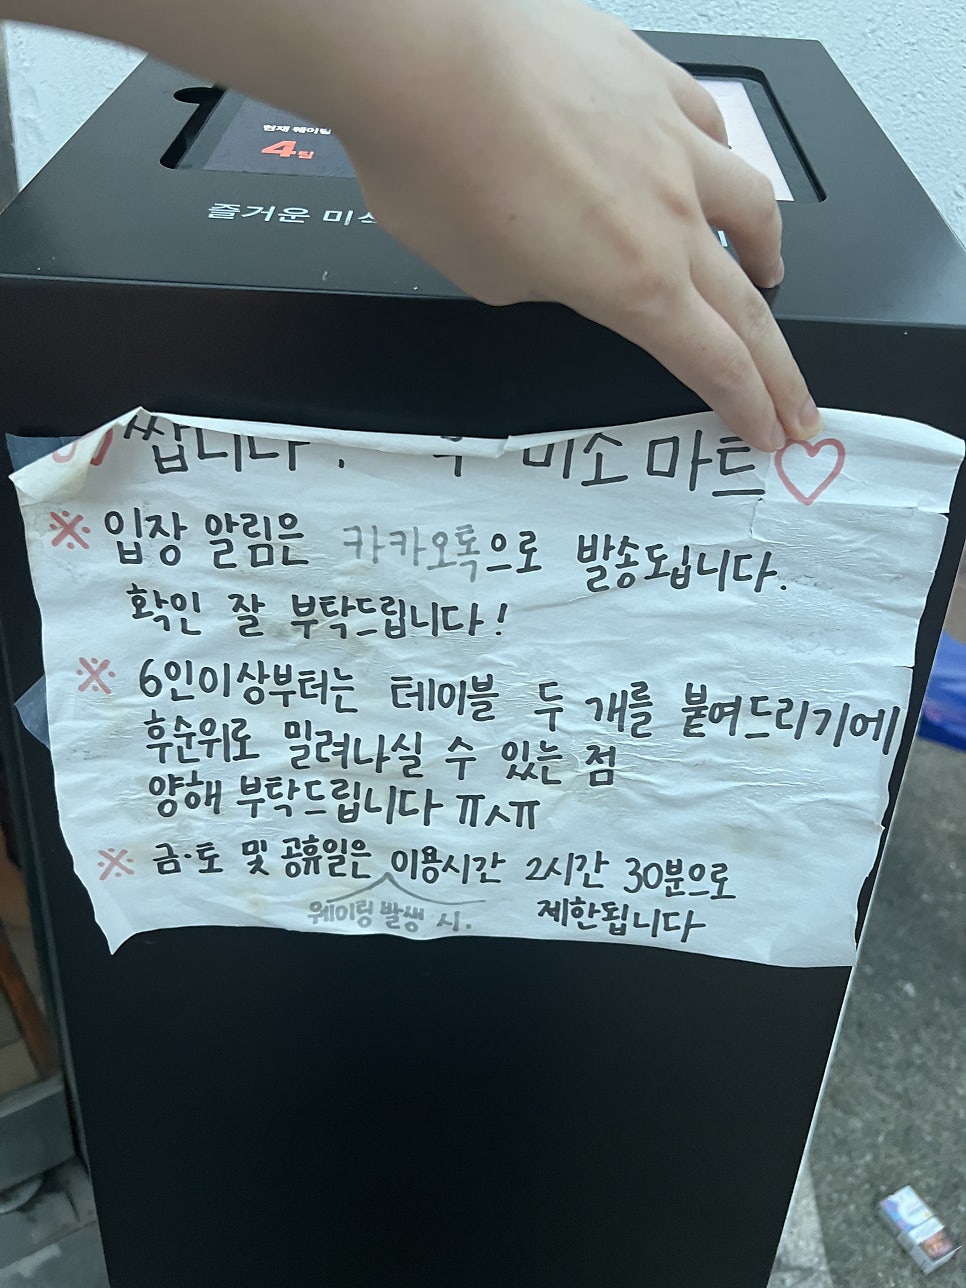 현재 웨이팅
4팀
즐거운 미
쌉니다. 미소마트♡
※ 입장 알림은 카카오톡으로 발송됩니다.
확인 잘 부탁드립니다!
※ 6인이상부터는 테이블 두 개를 붙여드리기에
후순위로 밀려나실 수 있는 점
양해 부탁드립니다 ㅠㅅㅠ
※ 금·토 및 공휴일은 이용시간 2시간 30분으로
웨이링 발생 시. 제한됩니다